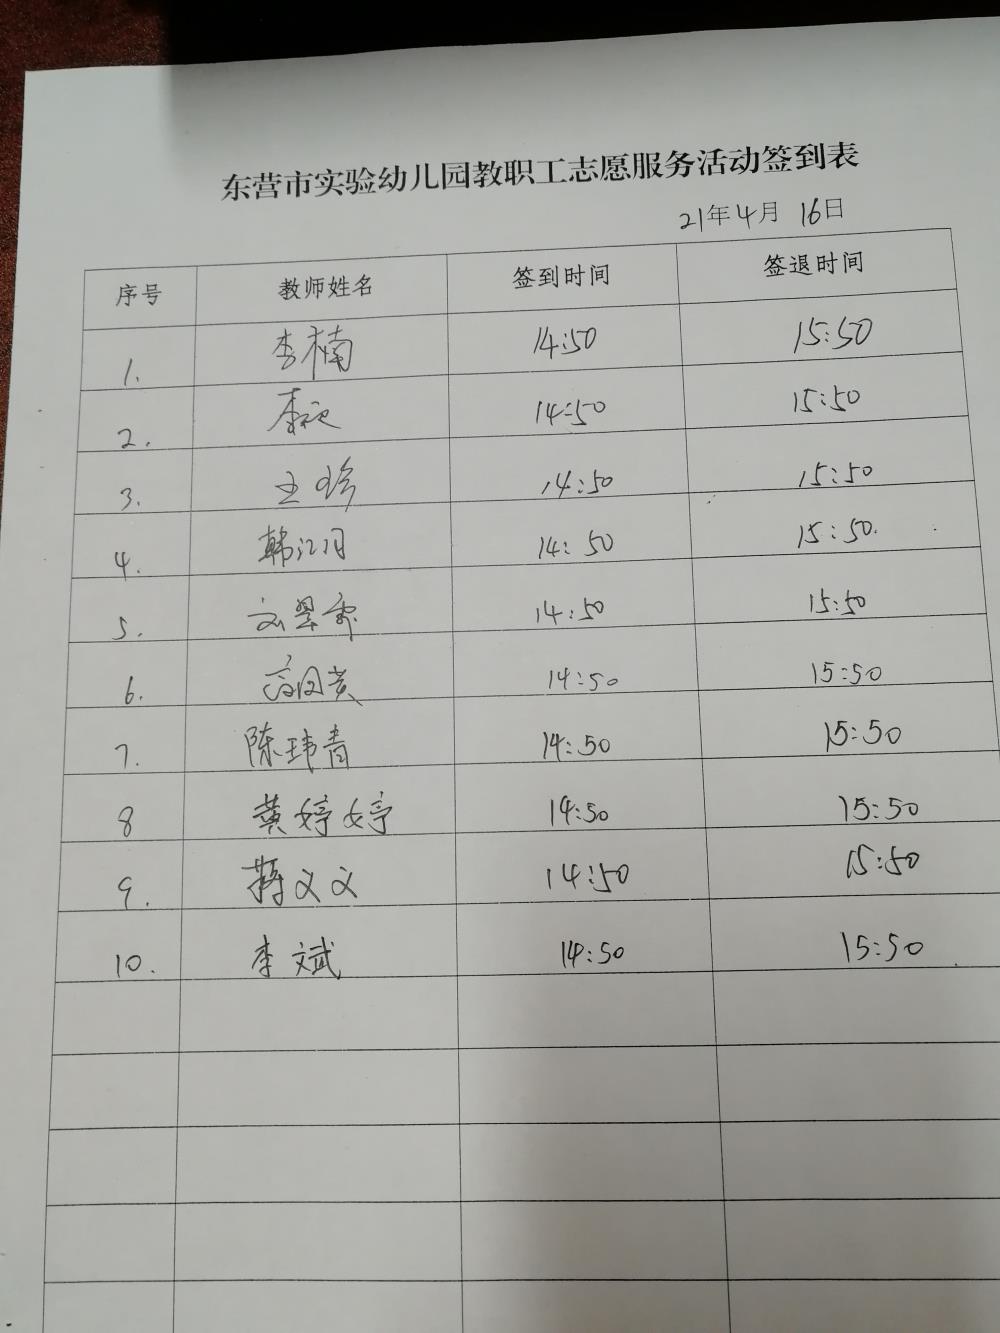 东营市实验幼儿园教职工志愿服务活动签到表
21年4月16日
序号 教师姓名 签到时间 签退时间
1. 李楠 14:50 15:50
2. 李 14:50 15:50
3. 王珍 14:50 15:50
4. 韩江月 14:50 15:50.
5. 14:50 15:50
6. 14:50 15:50
7. 陈玮青 14:50 15:50
8 黄婷婷 14:50 15:50
9. 蒋文文 14:50 15:50
10. 李斌 14:50 15:50